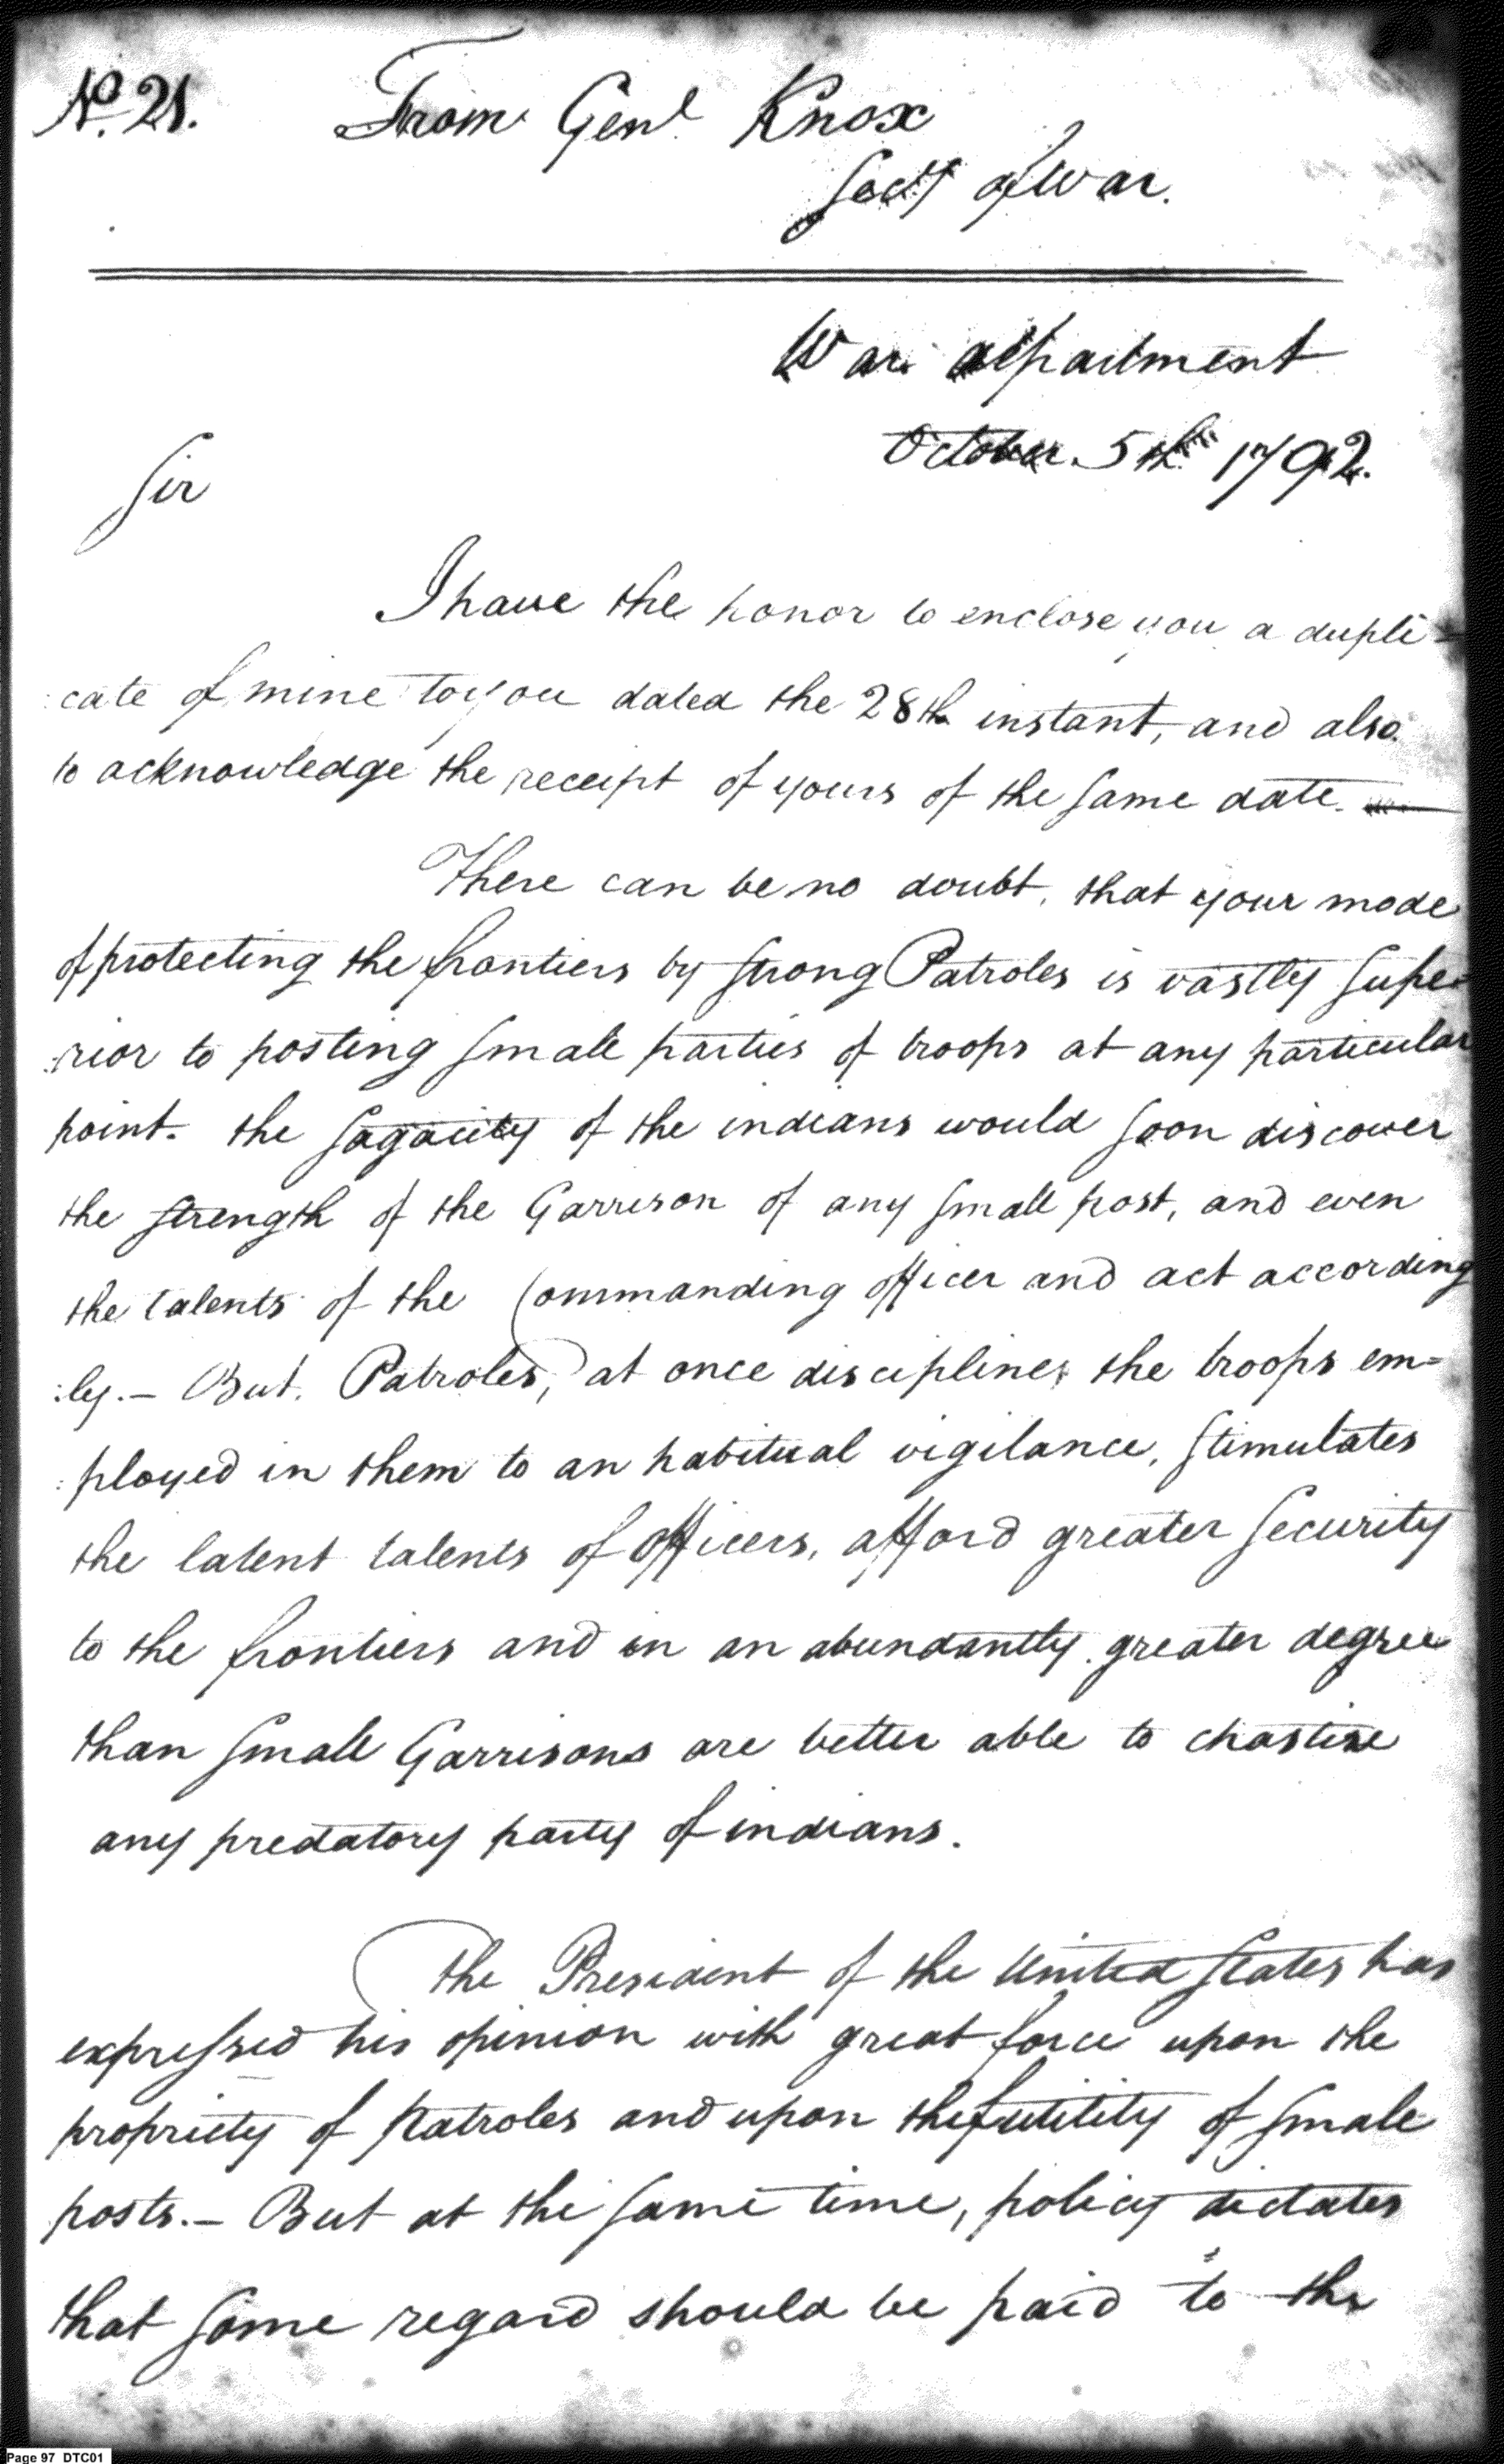 No. 21. From Genl Knox
Secy of War.
War department
October 5th 1792.
Sir
I have the honor to enclose you a dupli=
:cate of mine to you dated the 28th instant, and also
to acknowledge the receipt of yours of the same date.—
There can be no doubt, that your mode
of protecting the frontiers by strong Patroles is vastly supe=
:rior to posting small parties of troops at any particular
point. the sagacity of the indians would soon discover
the strength of the Garrison of any small post, and even
the talents of the Commanding officer and act according
:ly.— But, Patroles, at once disciplines the troops em=
:ployed in them to an habitual vigilance, stimulates
the latent talents of officers, afford greater security
to the frontiers and in an abundantly greater degree
than small Garrisons are better able to chastise
any predatory party of indians.
The President of the United States has
expressed his opinion with great force upon the
propriety of Patroles and upon the futility of small
posts.— But at the same time, policy dictates
that some regard should be paid to the
Page 97 DTC01